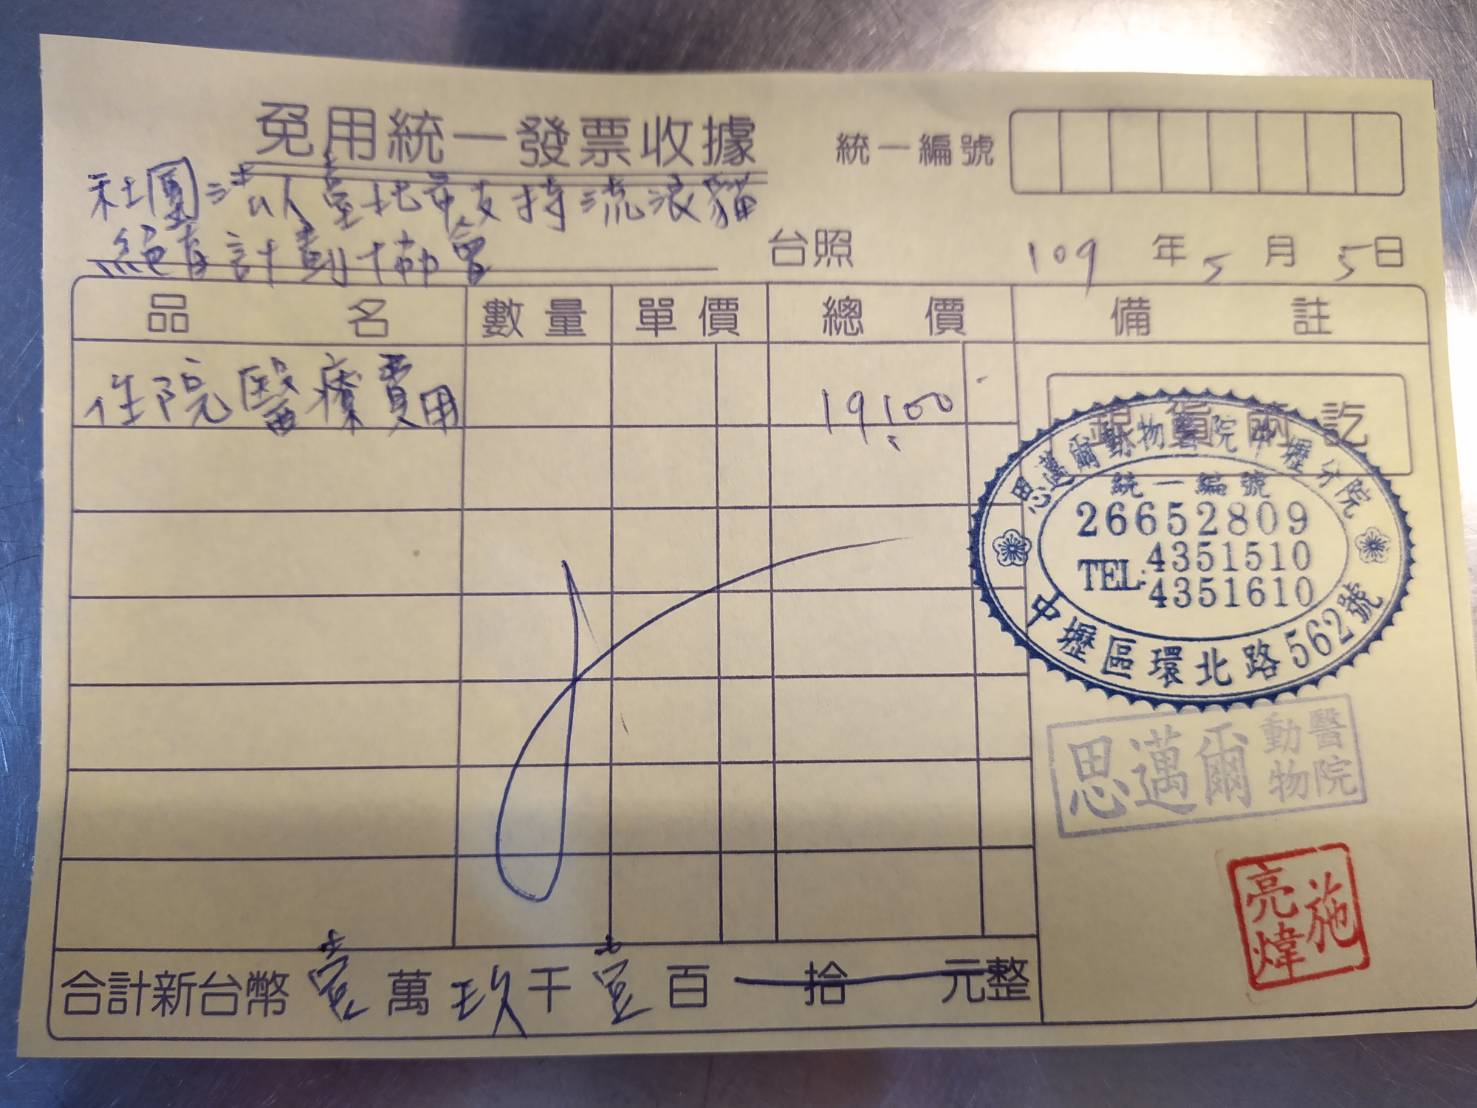 免用統一發票收據
統一編號
社團法人臺北市支持流浪貓
絕育計劃協會
台照
109年5月5日
品名 數量 單價 總價 備註
住院醫療費用 19,100
銀貨兩訖
思邁爾動物醫院中壢分院
統一編號
26652809
TEL:4351510
4351610
中壢區環北路562號
思邁爾動物醫院
施亮煒
合計新台幣壹萬玖千壹百拾元整